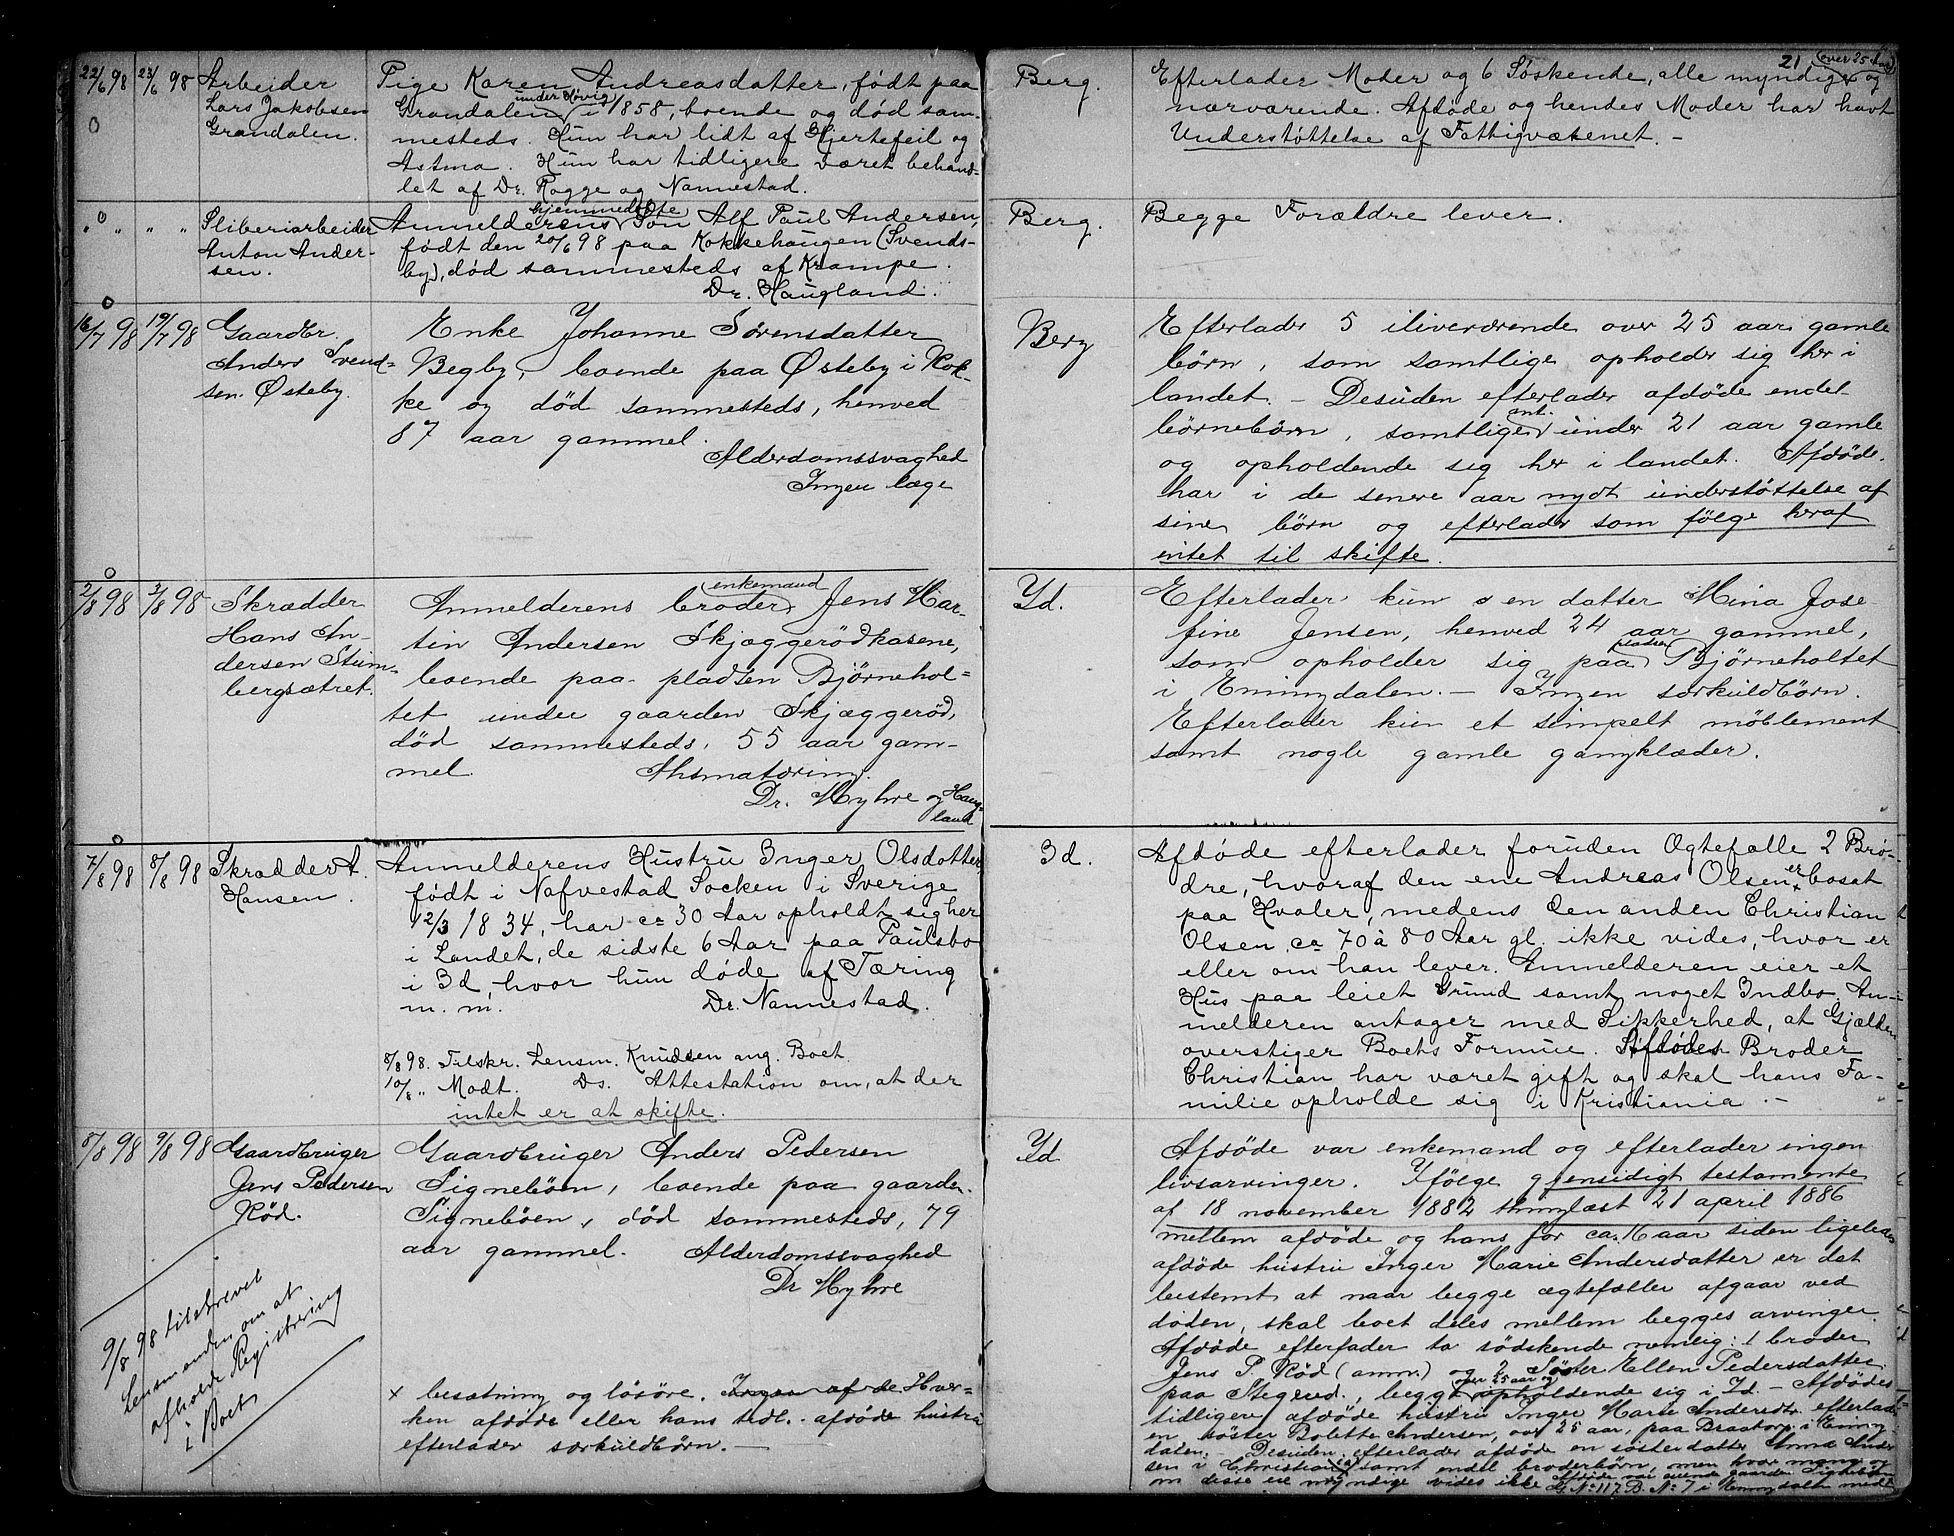 22/6 98 23/6 98 Arbeider
Lars Jakobsen
Grandalen.
Pige Karen Andreasdatter, født paa
Grandalen under Høvig i 1858, boende og død sam-
mesteds. Hun har lidt af Hjertefeil og
Astma. Hun har tidligere været behand-
let af Dr. Rogge og Nannestad.
Berg.
21 (over 25 Aar)
Efterlader Moder og 6 Søskende, alle myndige og
nærværende. Afdøde og hendes Moder har havt
Understøttelse af Fattigvæsenet. -
" 0 " " " Sliberiarbeider
Anton Ander-
sen.
Anmelderens hjemmedøbte Søn Alf Paul Andersen,
født den 20/6 98 paa Kokkehaugen (Svends-
by), død sammesteds af Krampe.
Dr. Haugland.
Berg.
Begge Forældre lever.
16/7 98 19/7 98 Gaardbr.
Anders Svend-
sen Østeby.
Enke Johanne Sørensdatter
Begby, boende paa Østeby i Rok-
ke og død sammesteds, henved
87 aar gammel.
Alderdomssvaghed
Ingen læge
Berg
Efterlader 5 iliverværende over 25 aar gamle
børn, som samtlige opholder sig her i
landet. - Desuden efterlader afdøde endel
børnebørn, samtlige ant. under 21 aar gamle
og opholdende sig her i landet. Afdøde
har i de senere aar nydt understøttelse af
sine børn og efterlader som følge heraf
intet til skifte.
2/8 98 3/8 98 Skrædder
Hans An-
dersen Stum-
bergsætret.
Anmelderens broder enkemand Jens Mar-
tin Andersen Skjæggerødkasene,
boende paa pladsen Bjørnehol-
tet under gaarden Skjæggerød,
død sammesteds, 55 aar gam-
mel. Athsmatæring.
Dr. Myhre og Haug-
land
Yd.
Efterlader kun en datter Mina Jose-
fine Jensen, henved 24 aar gammel,
som opholder sig paa pladsen Bjørneholtet
i Enningdalen. - Ingen særkuldbørn.
Efterlader kun et simpelt møblement
samt nogle gamle gangklæder.
7/8 98 8/8 98 Skrædder A.
Hansen.
Anmelderens Hustru Inger Olsdatter,
født i Nafvestad Socken i Sverige
12/3 1834, har ca 30 Aar opholdt sig her
i Landet, de sidste 6 Aar paa Paulsbo
i Id, hvor hun døde af Tæring
m. m. Dr. Nannestad.
8/8 98. Tilskr. Lensm. Knudsen ang. Boet.
10/8 " Modt. Ds. Attestation om, at der
intet er at skifte.
Id.
Afdøde efterlader foruden Ægtefælle 2 Brø-
dre, hvoraf den ene Andreas Olsen er bosat
paa Hvaler, medens den anden Christian
Olsen ca 70 à 80 Aar gl. ikke vides, hvor er
eller om han lever. Anmelderen eier et
Hus paa leiet Grund samt noget Indbo. An-
melderen antager med Sikkerhed, at Gjælden
overstiger Boets Formue. Afdødes Broder
Christian har været gift og skal hans Fa-
milie opholde sig i Kristiania. -
8/8 98 9/8 98 Gaardbruger
Jens Pedersen
Rød.
Gaardbruger Anders Pedersen
Signebøen, boende paa gaarden
Signebøen, død sammesteds, 79
aar gammel. Alderdomssvaghed
Dr Myhre
9/8 98 tilskrevet
Lensmanden om at
afholde Registrering
i Boet
x besætning og løsøre. Ingen af de Hver-
ken afdøde eller hans tidl. afdøde hustru
efterlader særkuldbørn. -
Yd
Afdøde var enkemand og efterlader ingen
livsarvinger. Ifølge gjensidigt testamente
af 18 november 1882 thinglæst 21 april 1886
mellem afdøde og hans for ca. 16 aar siden ligeledes
afdøde hustru Inger Marie Andersdatter er det
bestemt at naar begge ægtefæller afgaar ved
døden, skal boet deles mellem begges arvinger.
Afdøde efterlader to sødskende nemlig: 1 broder
Jens P. Rød (anm.) og 2 Søster Ellen Pedersdatter
paa Stegerud, begge over 25 aar og opholdende sig i Id. - Afdødes
tidligere afdøde hustru Inger Marie Andersdtr. efterlader
en søster Bolette Andersen, over 25 aar, paa Braatorp i Enning-
dalen. - Desuden efterlader afdøde en søsterdatter Anna Ander-
sen i Christiania samt endel broderbørn, men hvor mange og
om disse ere myndige vides ikke. Afdøde var eiende gaarden Signebøen
G. No 117 B. No 7 i Enningdalen med